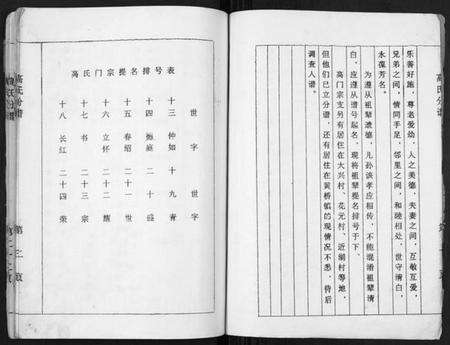 高氏分谱
乐善好施，尊老爱幼，人之美德，夫妻之间，互敬互爱，
兄弟之间，情同手足，邻里之间，和睦相处，世守清白，
永葆芳名。
为遵从祖辈遗德，儿孙该孝应相传，不能混淆祖辈清
白，应遵从谱号起名，现将祖辈提名排号于下。
高门宗支另有居住在大兴村、花元村、近湖村等地，
但他们已立分谱，还有居住在黄桥镇的现情况不悉，待后
调查入谱。
高氏门宗提名排号表
世 字 世 字
十三 仲如 十九 青
十四 二十 盛
十五 春绍 二十一 世
十六 立怀 二十二
十七 书 二十三 宗
十八 长红 二十四 荣
高氏分谱